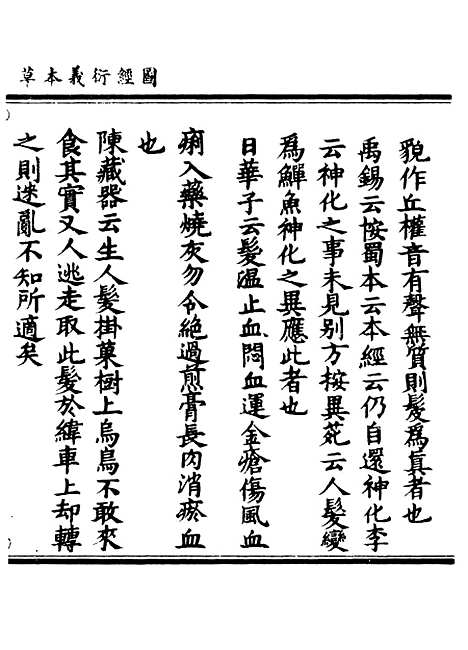 圖經衍義本草
貌作丘權音有聲無質則髮為真者也
禹錫云按蜀本云本經云仍自還神化李
云神化之事未見别方按異苑云人髮變
為鱓魚神化之異應此者也
日華子云髮温止血悶血運金瘡傷風血
痢入藥燒灰勿令絶過煎膏長肉消瘀血
也
陳藏器云生人髮掛菓樹上烏鳥不敢來
食其實又人逃走取此髮於緯車上却轉
之則迷亂不知所適矣